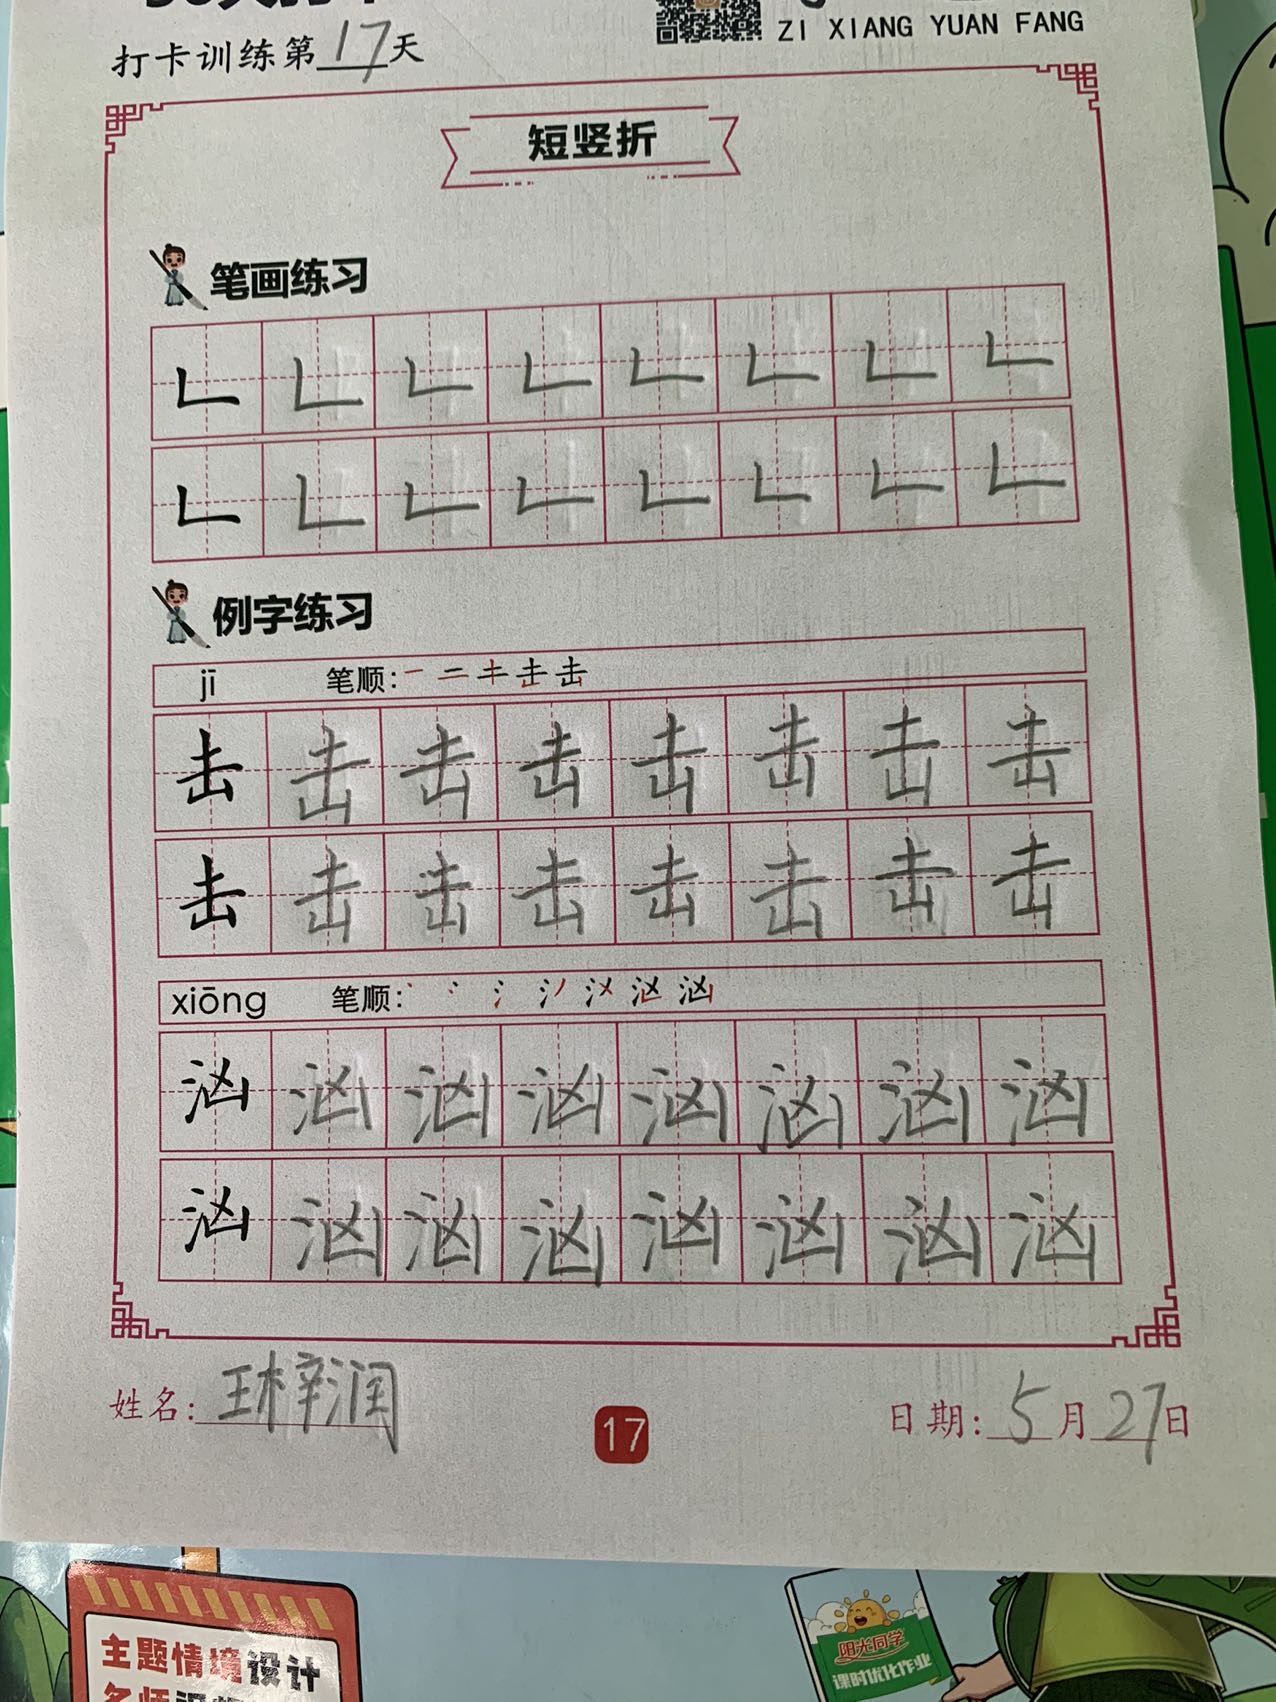 ZI XIANG YUAN FANG
打卡训练第17天
短竖折
笔画练习
例字练习
jī 笔顺:
击 击 击 击 击 击 击 击
击 击 击 击 击 击 击 击
xiōng 笔顺: 汹
汹 汹 汹 汹 汹 汹 汹 汹
汹 汹 汹 汹 汹 汹 汹 汹
姓名: 王梓润
17
日期: 5月27日
主题情境设计
阳光同学
课时优化作业